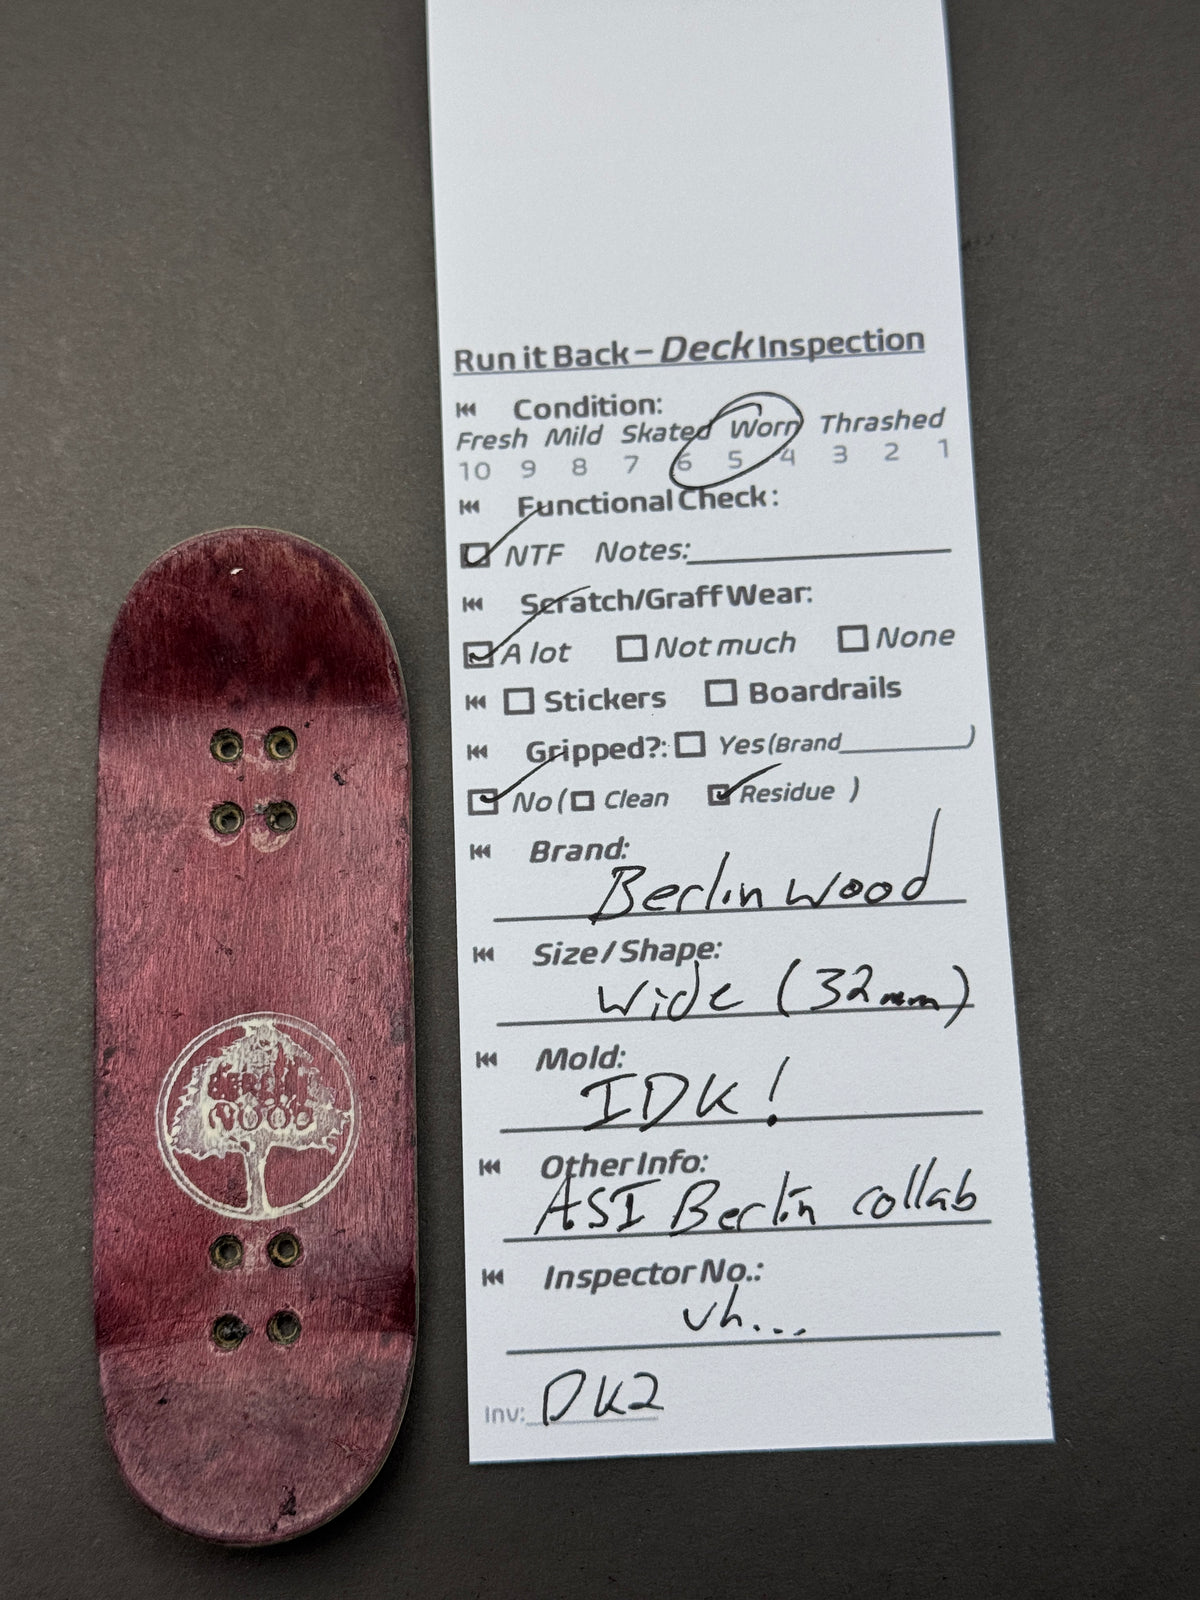 Run it Back – Deck Inspection
Condition:
Fresh Mild Skated Worn Thrashed
10 9 8 7 6 5 4 3 2 1
Functional Check:
NTF Notes:
Scratch/Graff Wear:
A lot Not much None
Stickers Boardrails
Gripped?: Yes (Brand )
No ( Clean Residue )
Brand:
Berlin wood
Size / Shape:
Wide (32mm)
Mold:
IDK!
Other Info:
ASI Berlin collab
Inspector No.:
vh...
Inv: DK2
BERLIN
WOOD